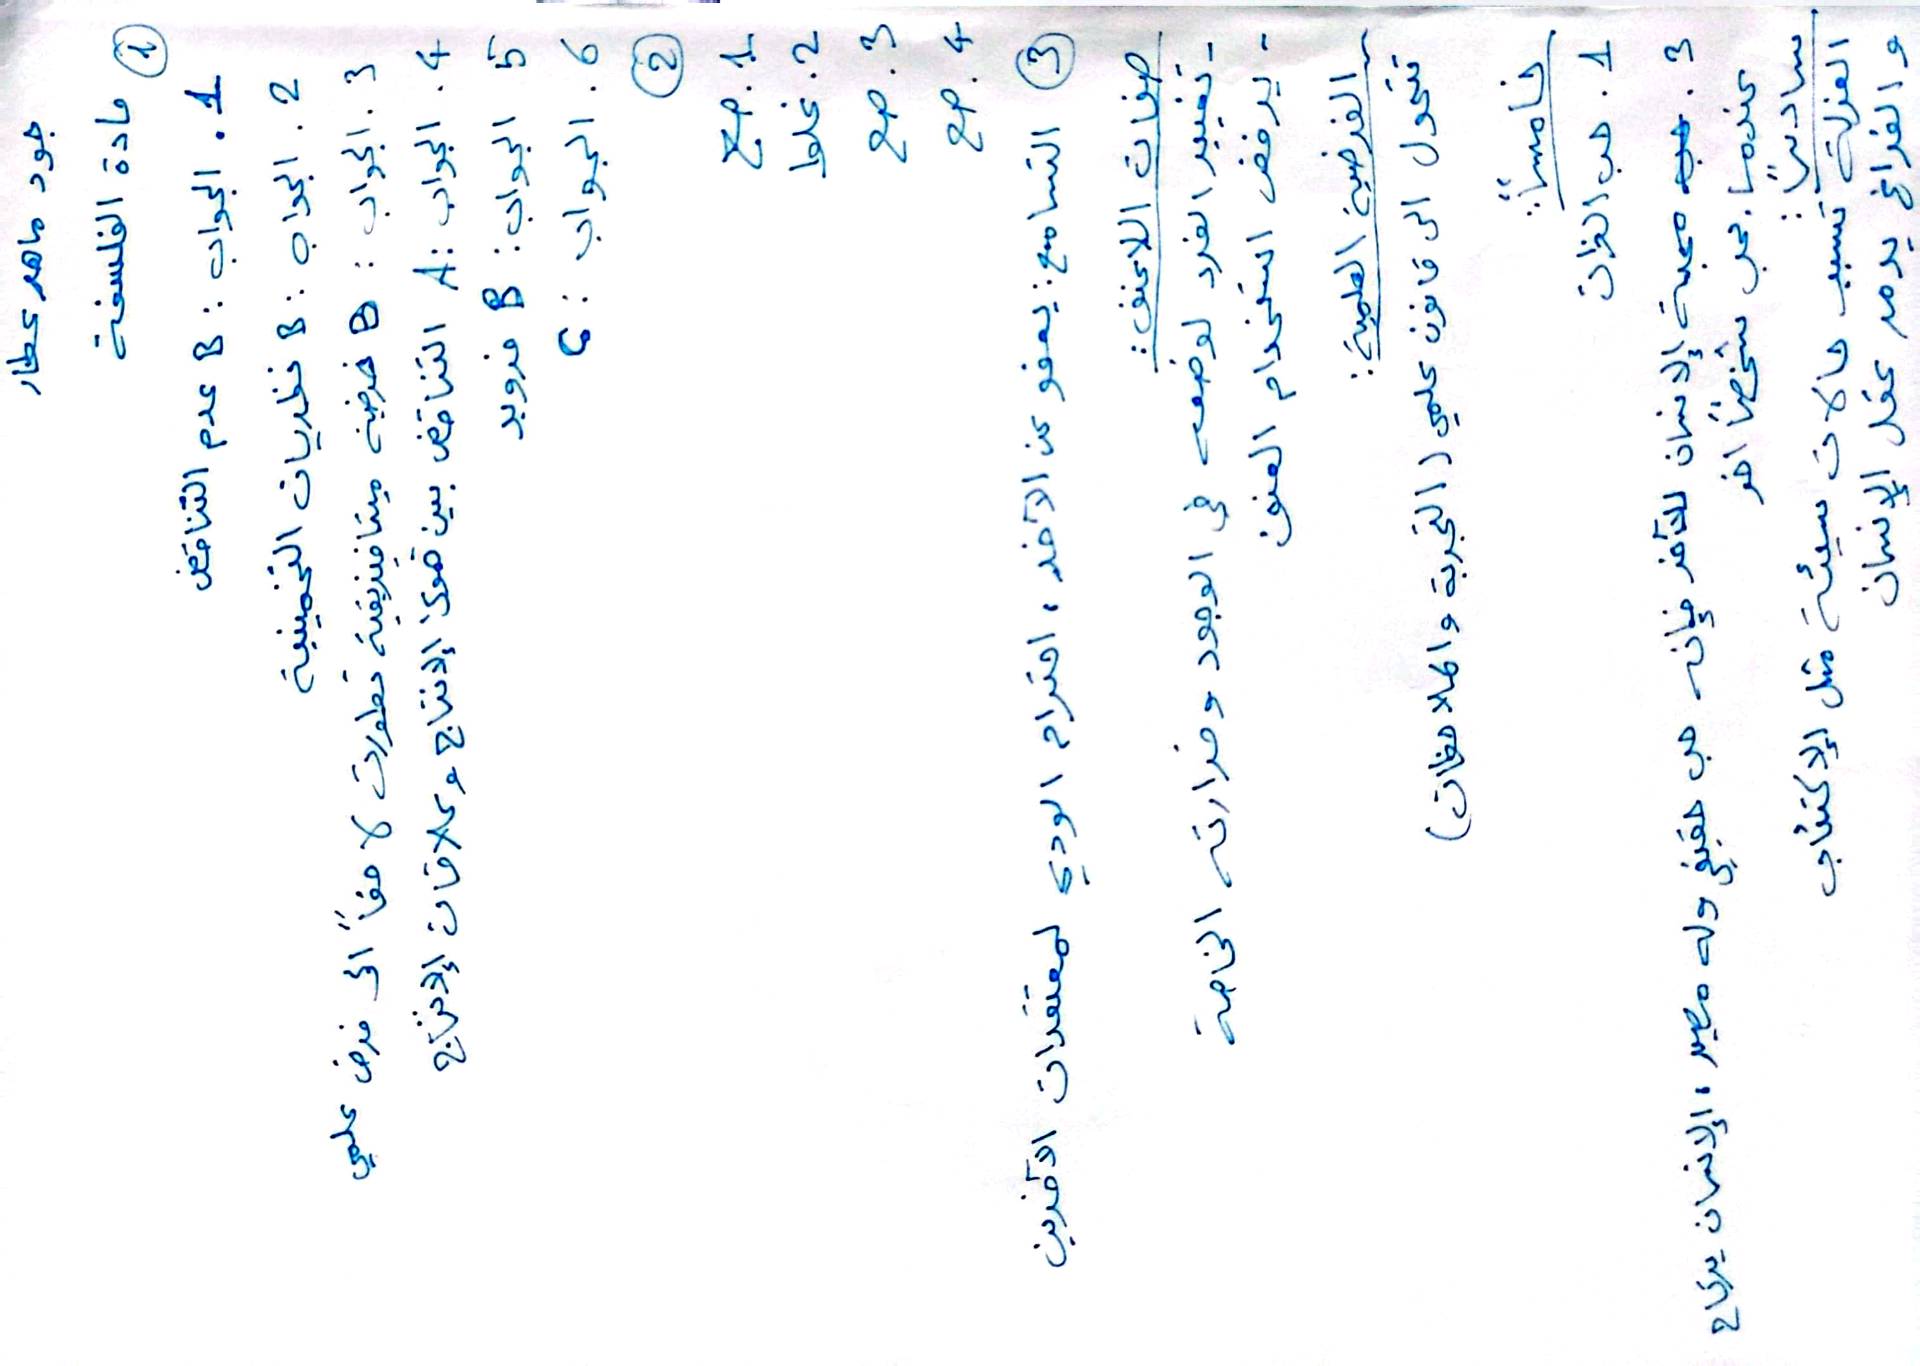 جود ماهر عطار
مادة الفلسفة
①
1. الجواب : B عدم التناقض
2. الجواب : B نظريات التخمينية
3. الجواب : B فرضية ميتافيزيقية تطورت لاحقاً الى فرض علمي
4. الجواب : A التناقض بين قوى الإنتاج وعلاقات الإنتاج
5 الجواب : B فرويد
6. الجواب : C
②
1. صح
2. غلط
3. صح
4. صح
③ التسامح : يعفو عن الآخر ، احترام الودي لمعتقدات الآخرين
صفات اللاعنف :
- تغيير الفرد لوضعه في الوجود وخدارته الخاصة
- يرفض استخدام العنف
الفرضية العلمية :
تتحول الى قانون علمي ( التجربة والملاحظات )
خامساً :
1. حب الذات
3. محبة الإنسان للآخر فإنه حب حقيقي وله مصير ، الإنسان يرتاح
عندما يحب شخصاً اخر
سادساً :
العزلة تسبب حالات سيئة مثل الإكتئاب
و الفراغ يدمر عقل الإنسان